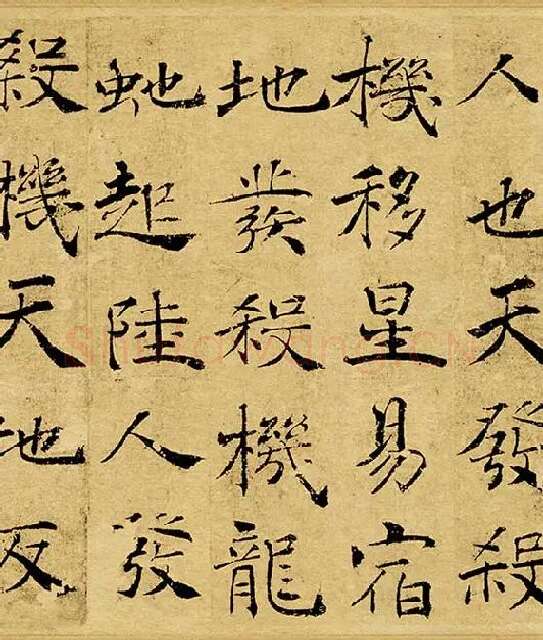 人也天發殺
機移星易宿
地發殺機龍
虵起陸人發
殺機天地反